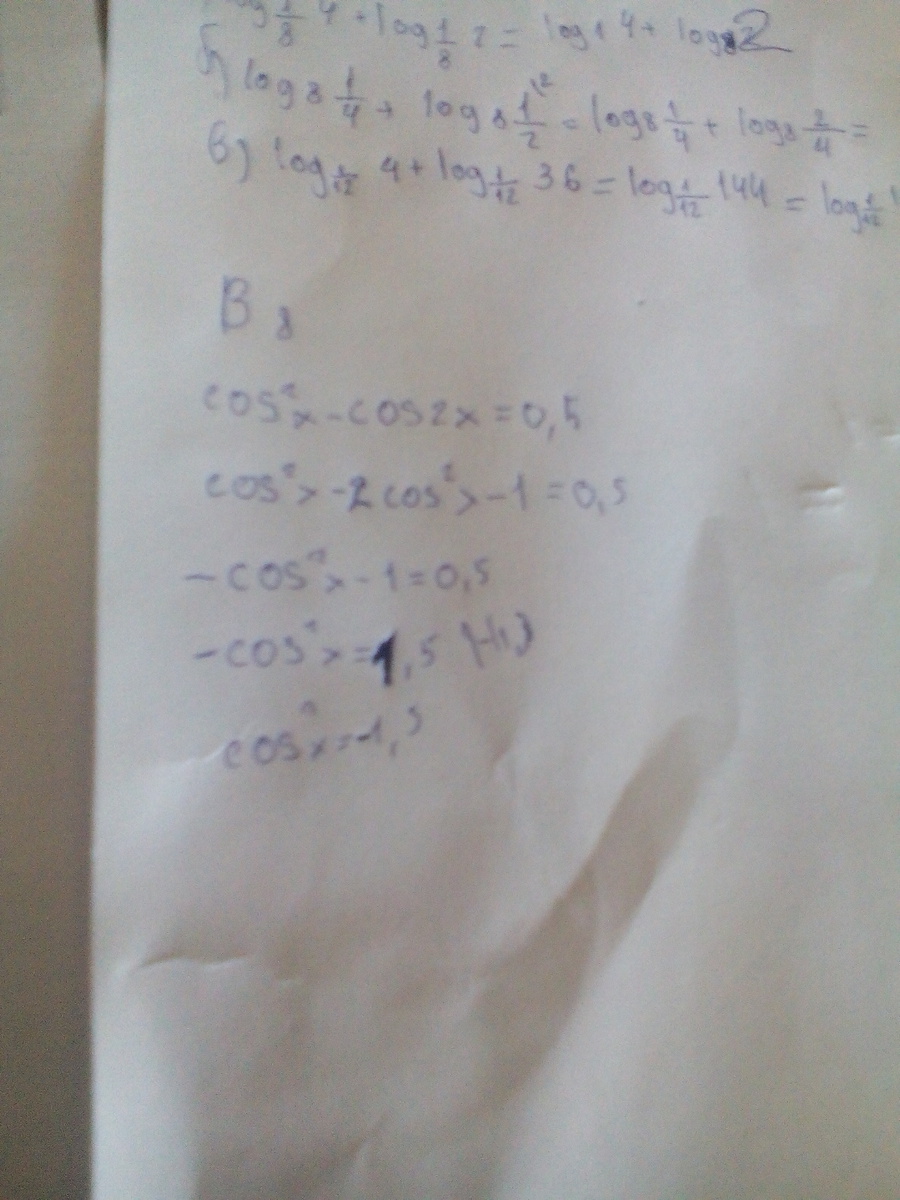 log 1/8 4 + log 1/8 2 = log 1 4 + log 8 2
б) log 8 1/4 + log 8 1/2 \2 = log 8 1/4 + log 8 2/4 =
в) log 1/12 4 + log 1/12 36 = log 1/12 144 = log 1/12
B 8
cos²x - cos2x = 0,5
cos²x - 2cos²x - 1 = 0,5
- cos²x - 1 = 0,5
- cos²x = 1,5
cos²x = -1,5